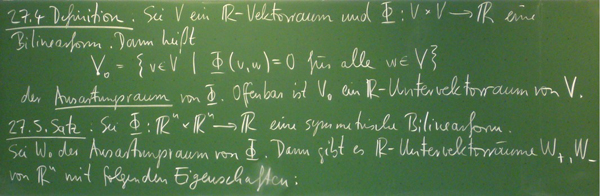 27.4 Definition. Sei V ein ℝ-Vektorraum und Φ : V × V → ℝ eine
Bilinearform. Dann heißt
V₀ = { v ∈ V | Φ(v,w) = 0 für alle w ∈ V }
der Ausartungsraum von Φ. Offenbar ist V₀ ein ℝ-Untervektorraum von V.
27.5. Satz. Sei Φ : ℝⁿ × ℝⁿ → ℝ eine symmetrische Bilinearform.
Sei W₀ der Ausartungsraum von Φ. Dann gibt es ℝ-Untervektorräume W₊, W₋
von ℝⁿ mit folgenden Eigenschaften: